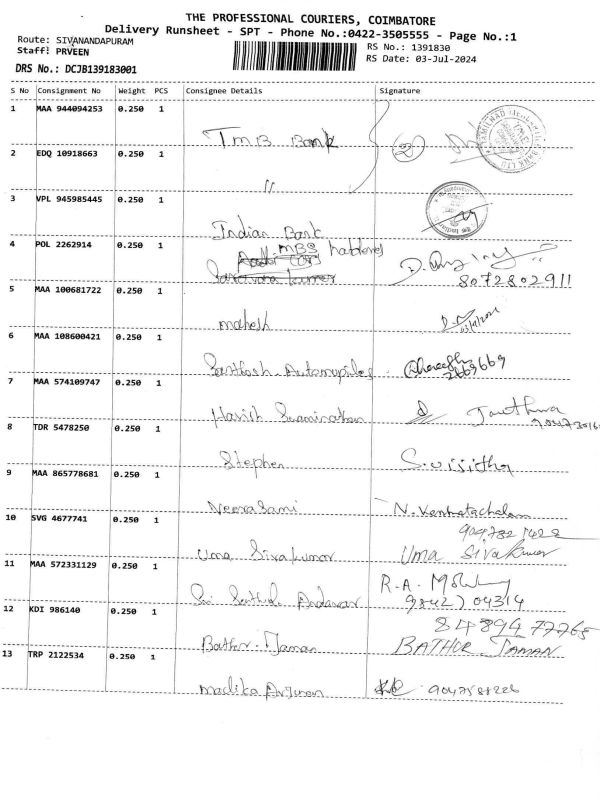 THE PROFESSIONAL COURIERS, COIMBATORE
Delivery Runsheet - SPT - Phone No.:0422-3505555 - Page No.:1
Route: SIVANANDAPURAM
RS No.: 1391830
Staff: PRVEEN
RS Date: 03-Jul-2024
DRS No.: DCJB139183001
S No Consignment No Weight PCS Consignee Details Signature
1 MAA 944094253 0.250 1
TMB Bank
2 EDQ 10918663 0.250 1
"
3 VPL 945985445 0.250 1
Indian Bank
4 POL 2262914 0.250 1
MBS
8072802911
5 MAA 100681722 0.250 1
mahesh
6 MAA 108600421 0.250 1
Santhosh Automobiles
2669669
7 MAA 574109747 0.250 1
Harish Swaminathan
8 TDR 5478250 0.250 1
Stephen
9 MAA 865778681 0.250 1
Neera Sami N. Venkatachalam
10 SVG 4677741 0.250 1
Uma Sivakumar Uma Sivakumar
11 MAA 572331129 0.250 1
R-A.
Sri Senthil Andavar 9842704314
12 KDI 986140 0.250 1
8489477765
Bathor Jaman BATHUR JAMAN
13 TRP 2122534 0.250 1